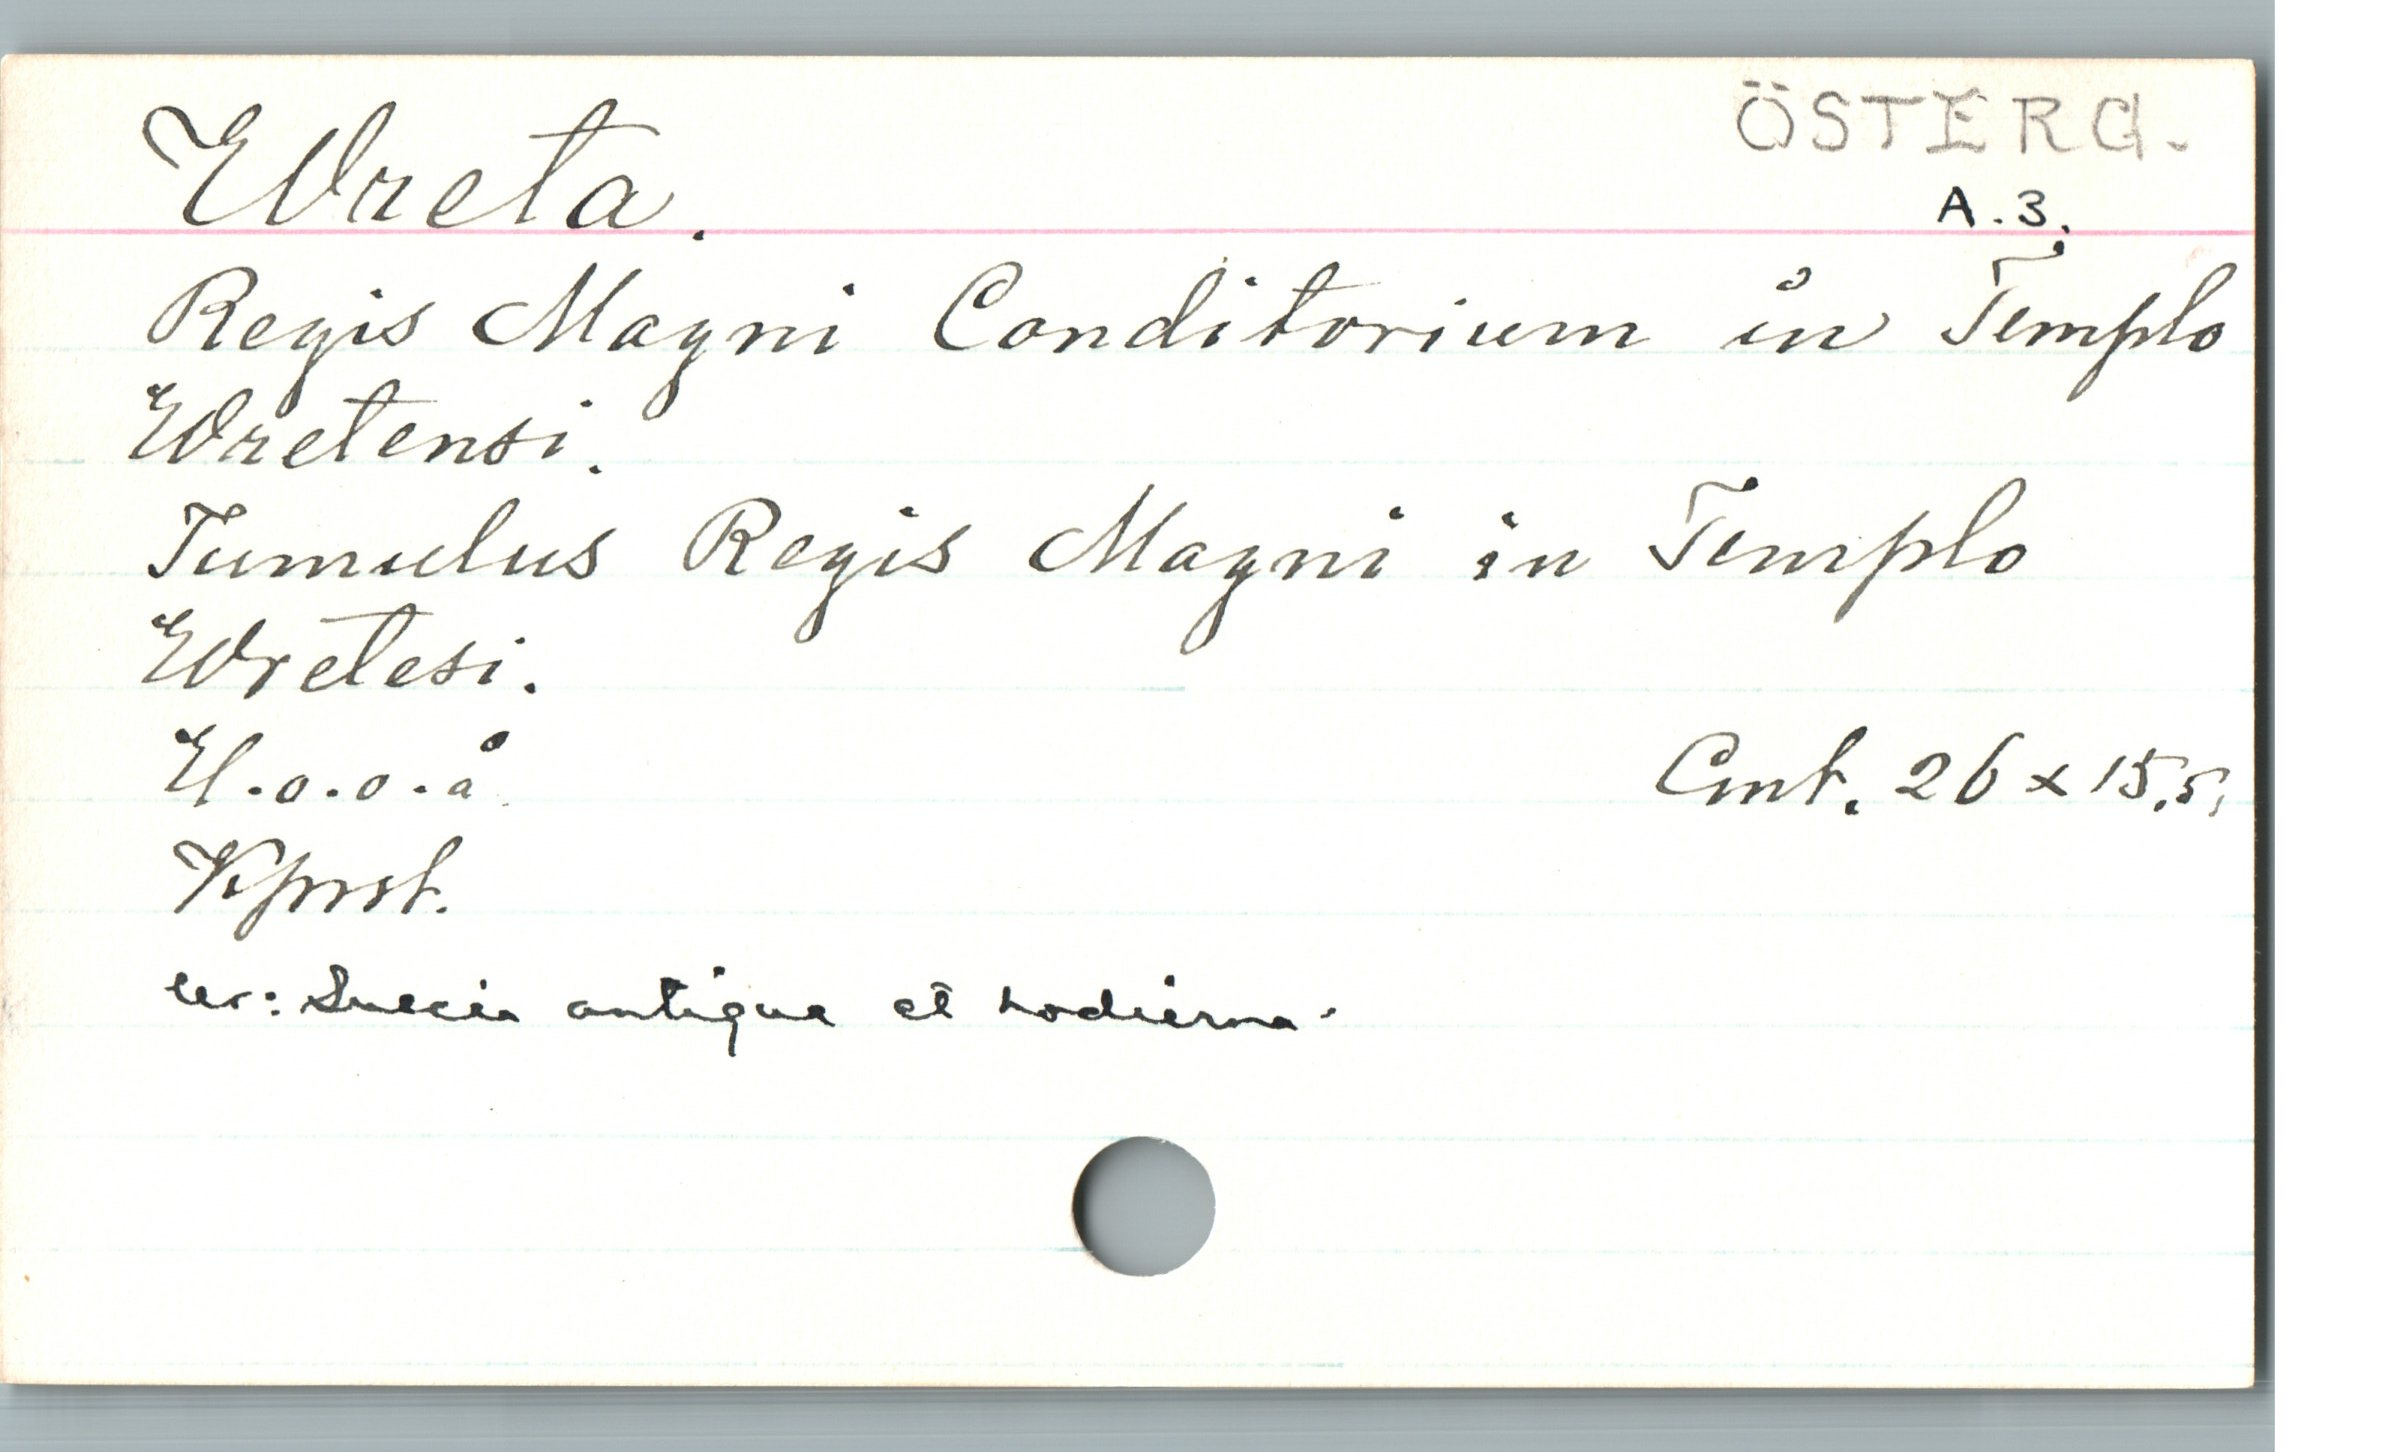 Wreta.
ÖSTERG.
A.3.
Regis Magni Conditorium in Templo
Wretensi.
Tumulus Regis Magni in Templo
Wretesi.
U.o.o.å.
Cmt. 26 x 15,5,
Kprst.
ur: Suecia antiqua et hodierna.